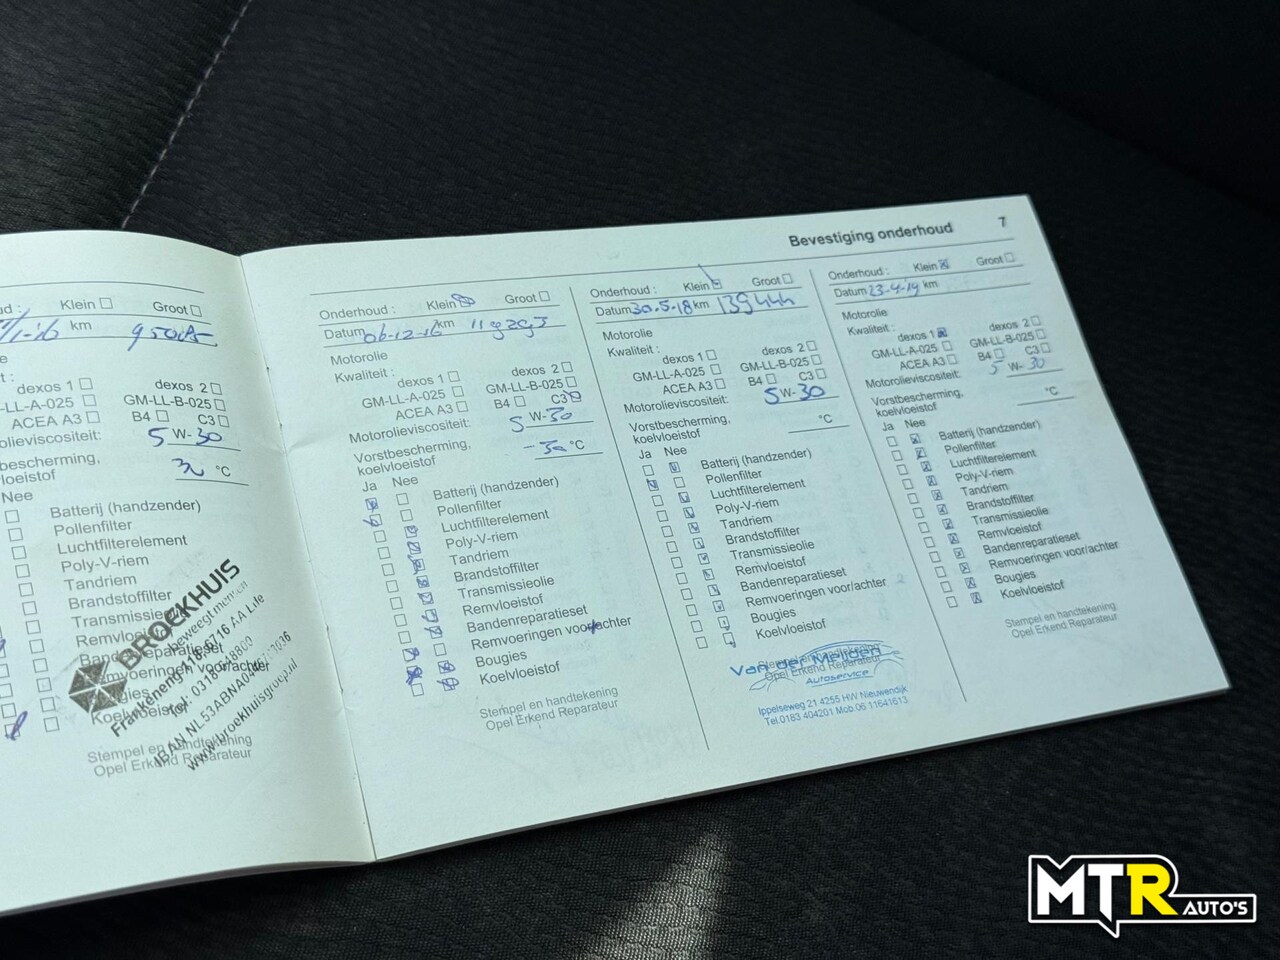 Bevestiging onderhoud 7
Klein Groot
km
dexos 1 dexos 2
GM-LL-B-025
ACEA A3 B4 C3
5 W-30
°C
Nee
Batterij (handzender)
Pollenfilter
Luchtfilterelement
Poly-V-riem
Tandriem
Brandstoffilter
BROEKHUIS
www.broekhuisgroep.nl
Stempel en handtekening
Opel Erkend Reparateur
Onderhoud : Klein Groot
Datum 06-12-16 km
Motorolie
Kwaliteit :
dexos 1 dexos 2
GM-LL-A-025 GM-LL-B-025
ACEA A3 B4 C3
Motorolieviscositeit: 5 W-30
Vorstbescherming,
koelvloeistof -30 °C
Ja Nee
Batterij (handzender)
Pollenfilter
Luchtfilterelement
Poly-V-riem
Tandriem
Brandstoffilter
Transmissieolie
Remvloeistof
Bandenreparatieset
Remvoeringen voor/achter
Bougies
Koelvloeistof
Stempel en handtekening
Opel Erkend Reparateur
Onderhoud : Klein Groot
Datum 30.5-18 km 139444
Motorolie
Kwaliteit :
dexos 1 dexos 2
GM-LL-A-025 GM-LL-B-025
ACEA A3 B4 C3
Motorolieviscositeit: 5 W-30
Vorstbescherming,
koelvloeistof °C
Ja Nee
Batterij (handzender)
Pollenfilter
Luchtfilterelement
Poly-V-riem
Tandriem
Brandstoffilter
Transmissieolie
Remvloeistof
Bandenreparatieset
Remvoeringen voor/achter
Bougies
Koelvloeistof
Stempel en handtekening
Opel Erkend Reparateur
Van der Meijden
Autoservice
Ippelseweg 21 4255 HW Nieuwendijk
Tel.0183 404201 Mob.06 11641613
Onderhoud : Klein Groot
Datum 23-4-19 km
Motorolie
Kwaliteit :
dexos 1 dexos 2
GM-LL-A-025 GM-LL-B-025
ACEA A3 B4 C3
Motorolieviscositeit: 5 W-30
Vorstbescherming,
koelvloeistof °C
Ja Nee
Batterij (handzender)
Pollenfilter
Luchtfilterelement
Poly-V-riem
Tandriem
Brandstoffilter
Transmissieolie
Remvloeistof
Bandenreparatieset
Remvoeringen voor/achter
Bougies
Koelvloeistof
Stempel en handtekening
Opel Erkend Reparateur
MTR AUTO'S